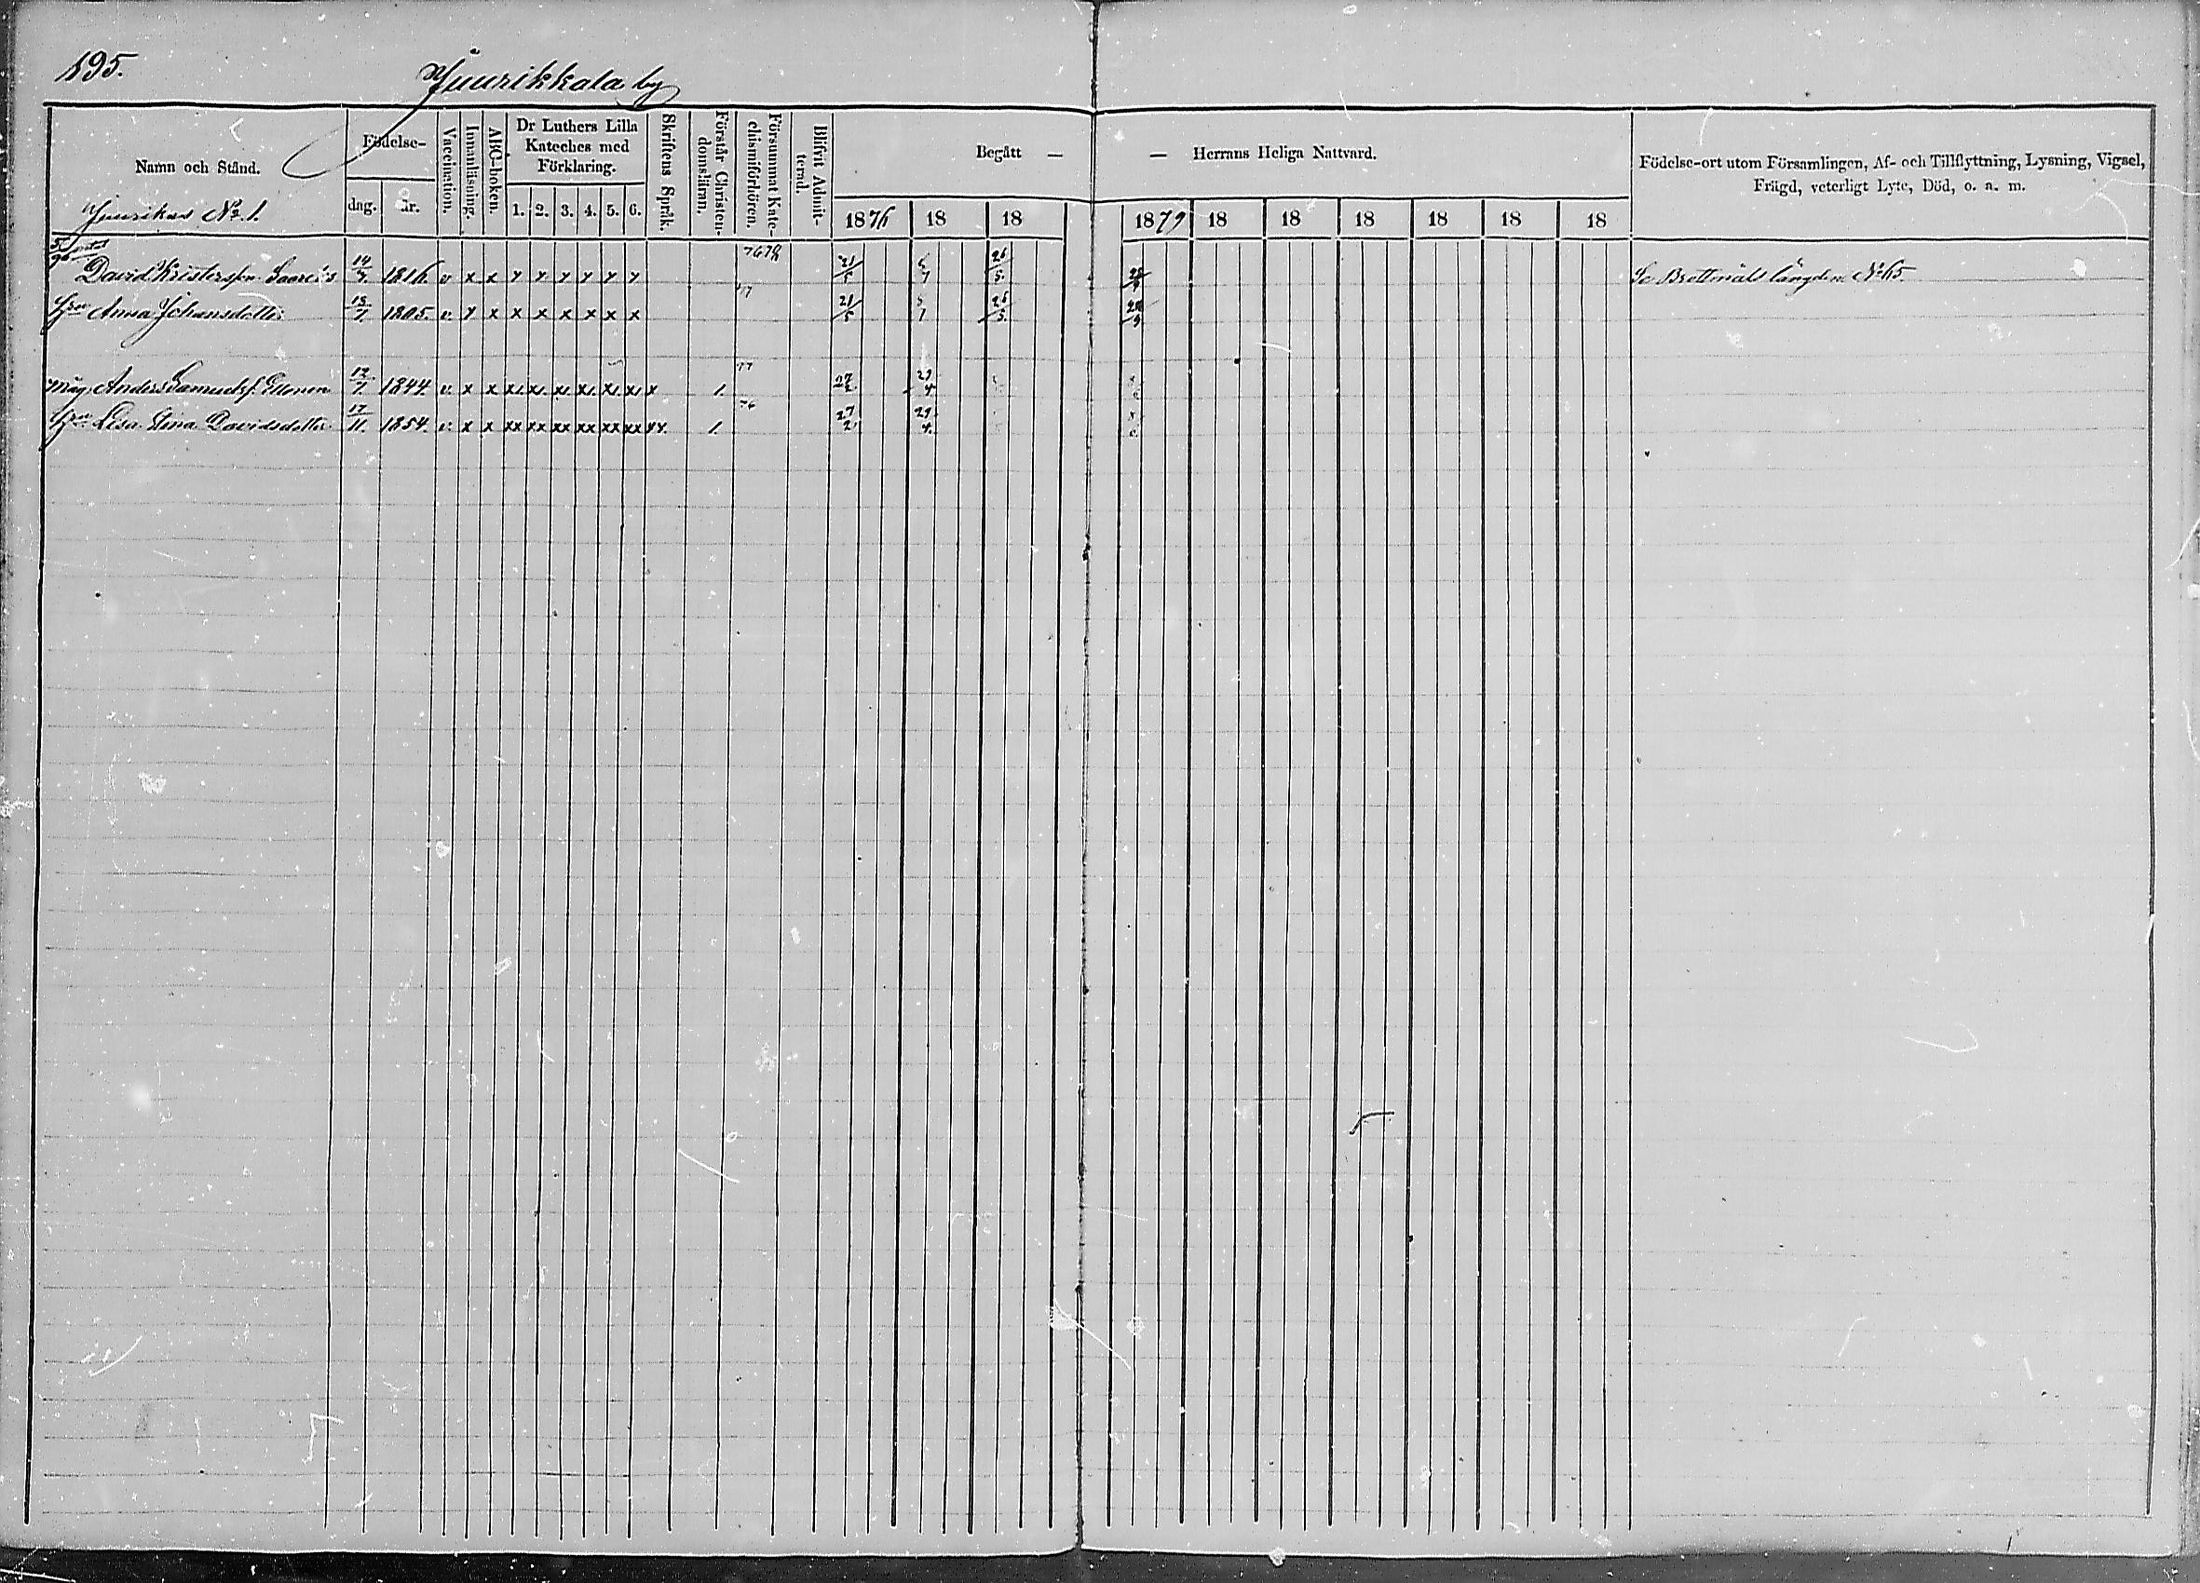 195.
Juurikkala by
Namn och Stånd.
Födelse-
dag.
år.
Vaccination.
Innanläsning.
ABC-boken.
Dr Luthers Lilla
Kateches med
Förklaring.
1. 2. 3. 4. 5. 6.
Skriftens Språk.
Förstår Christen-
domsläran.
Försummat Kate-
chismiförhören.
Blifvit Admit-
terad.
Begått — — Herrans Heliga Nattvard.
1876 18 18 1879 18 18 18 18 18 18
Födelse-ort utom Församlingen, Af- och Tillflyttning, Lysning, Vigsel,
Frägd, veterligt Lyte, Död, o. a. m.
Juurikas No 1.
David Kristersson 14/7. 1816. v x x y y y y y y 21/5 26/5. Se Brottmåls längden No 65.
Hru Anna Johansdotter 1805. v. y x x x x x x x 21/5 26/5.
måg Anders Samuelsf. 12/1 1844. v. x x x 1. 27/2. 29/4
Hru Lisa Stina Davidsdotter 17/11. 1854. v. x x xx xx xx xx xx xx xx. 1. 76 27/2. 29/4.